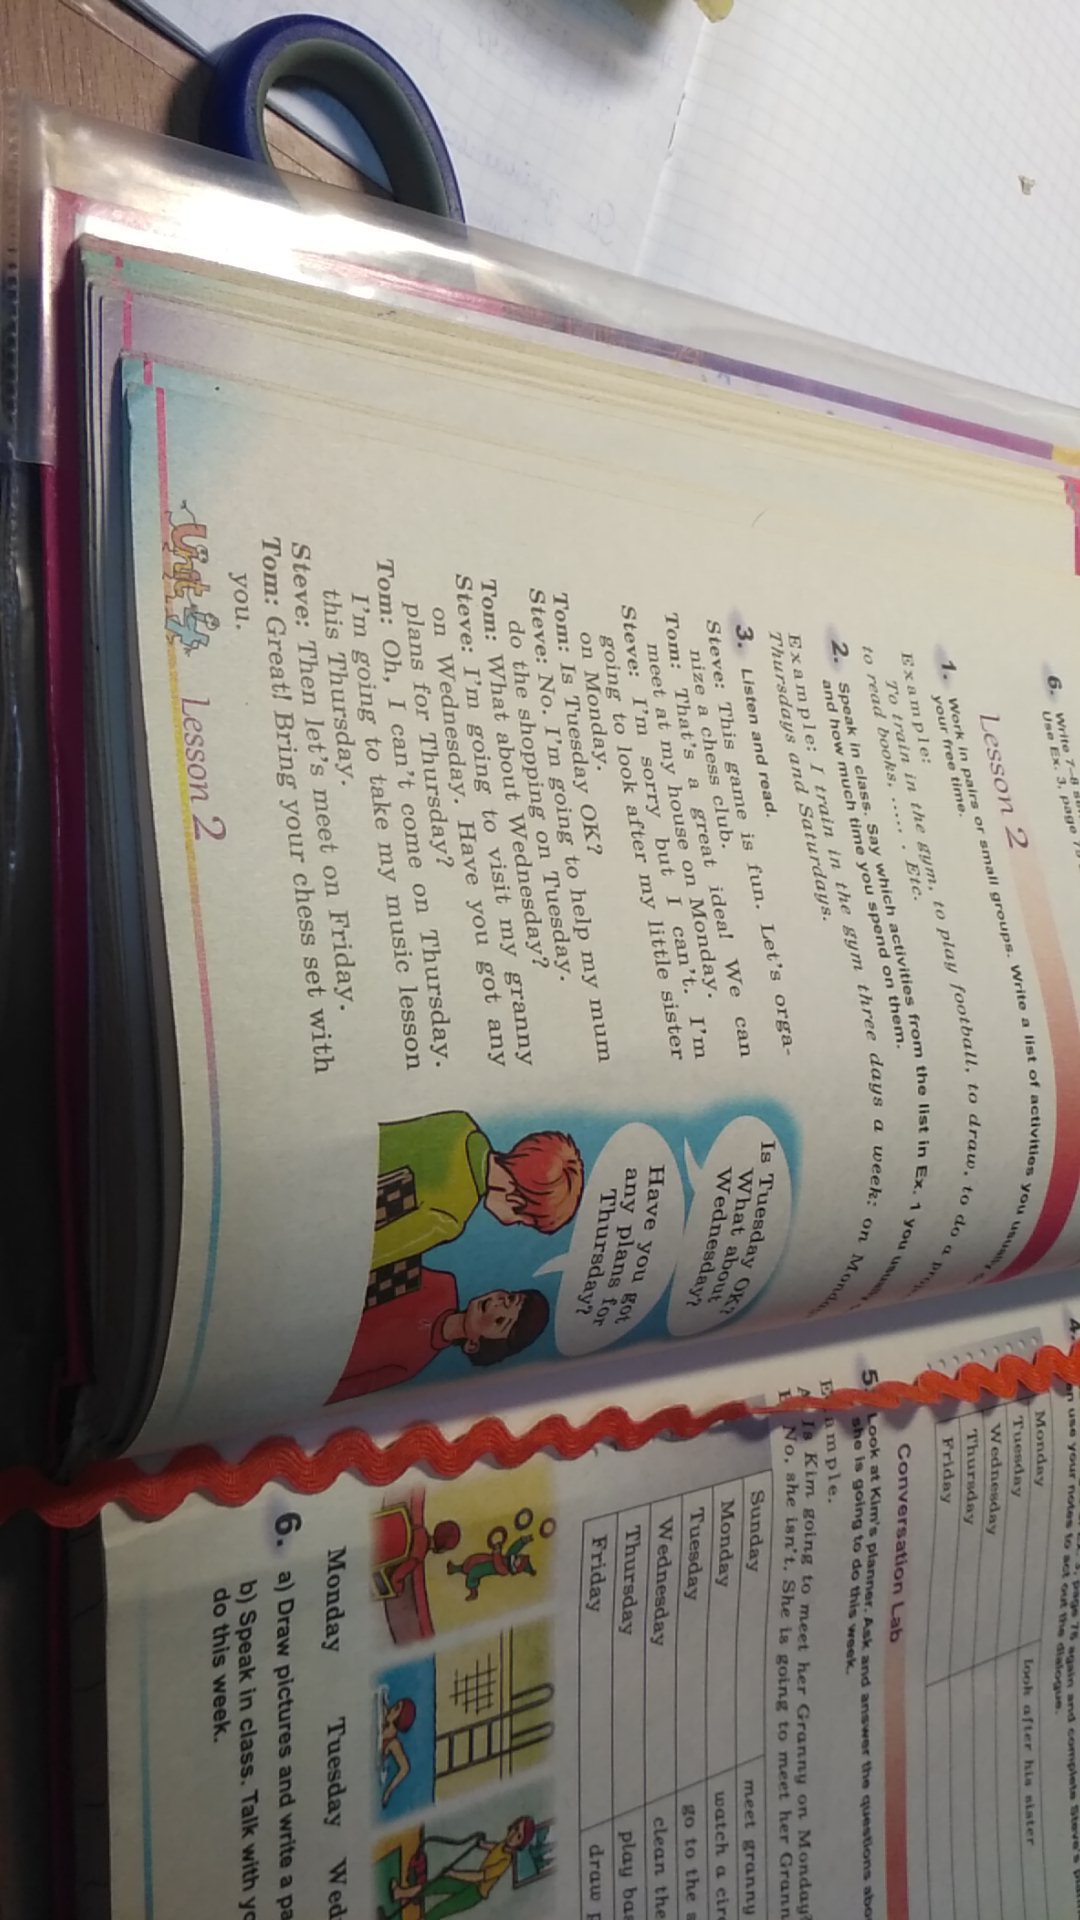 6. Write 7–8
Use Ex. 3, page
Lesson 2
1. Work in pairs or small groups. Write a list of activities you usually
your free time.
Example:
To train in the gym, to play football, to draw, to do a
to read books, ..... . Etc.
2. Speak in class. Say which activities from the list in Ex. 1 you usually
and how much time you spend on them.
Example: I train in the gym three days a week: on Mondays
Thursdays and Saturdays.
3. Listen and read.
Steve: This game is fun. Let's orga-
nize a chess club.
Tom: That's a great idea! We can
meet at my house on Monday.
Steve: I'm sorry but I can't. I'm
going to look after my little sister
on Monday.
Tom: Is Tuesday OK?
Steve: No. I'm going to help my mum
do the shopping on Tuesday.
Tom: What about Wednesday?
Steve: I'm going to visit my granny
on Wednesday. Have you got any
plans for Thursday?
Tom: Oh, I can't come on Thursday.
I'm going to take my music lesson
this Thursday.
Steve: Then let's meet on Friday.
Tom: Great! Bring your chess set with
you.
Is Tuesday OK?
What about
Wednesday?
Have you got
any plans for
Thursday?
Unit Lesson 2
4.
use your notes to act out the dialogue.
page 76 again and complete Steve's
Monday look after his sister
Tuesday
Wednesday
Thursday
Friday
Conversation Lab
5. Look at Kim's planner. Ask and answer the questions
she is going to do this week.
Example.
A Is Kim going to meet her Granny on Monday?
No, she isn't. She is going to meet her
Sunday meet granny
Monday watch a
Tuesday go to the
Wednesday clean the
Thursday play
Friday draw
Monday Tuesday
6. a) Draw pictures and write a
b) Speak in class. Talk with
do this week.